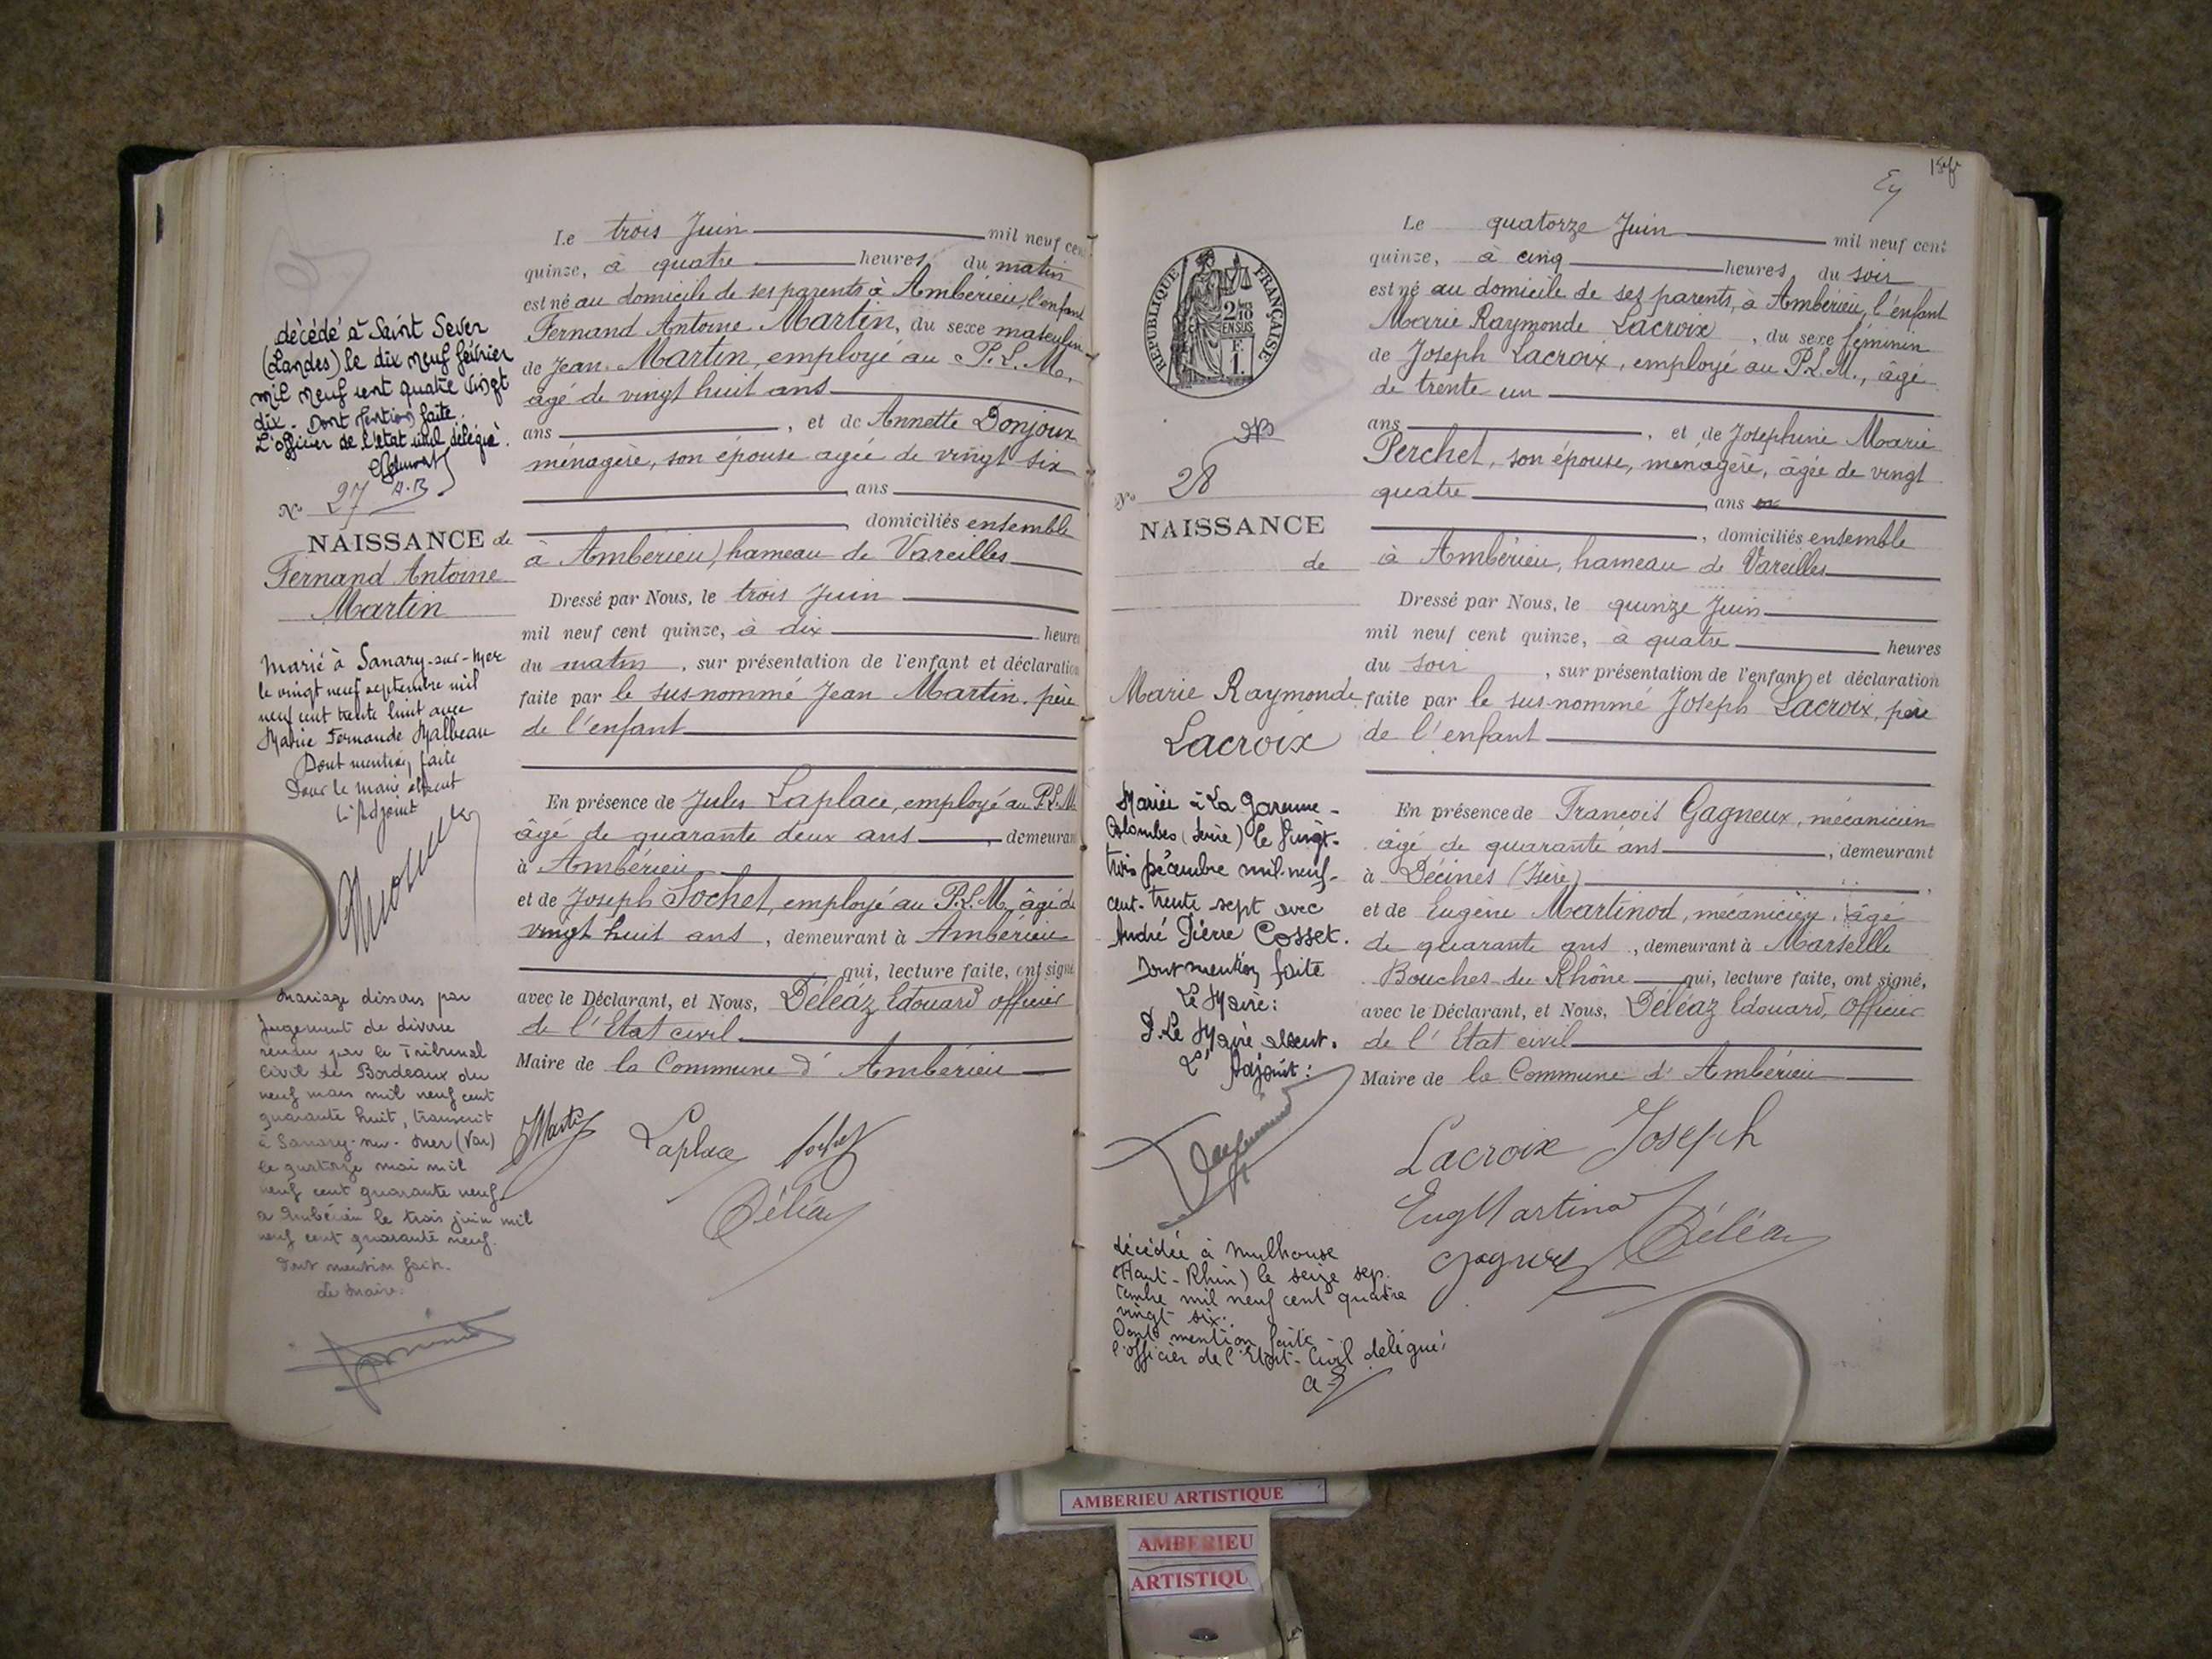 décédé à Saint Sever
(Landes) le dix neuf février
mil neuf cent quatre vingt
dix. Dont Mention faite.
L'officier de l'état civil délégué.
A.B
N° 27
NAISSANCE de
Fernand Antoine
Martin
Marié à Sanary-sur-Mer
le vingt neuf septembre mil
neuf cent trente huit avec
Marie Fernande Malbeau
Dont mention faite
Pour le maire absent
L'Adjoint
Mariage dissous par
Jugement de divorce
rendu par le Tribunal
Civil de Bordeaux du
neuf mars mil neuf cent
quarante huit, transcrit
à Sanary-sur-Mer (Var)
le quatorze mai mil
neuf cent quarante neuf
a Ambérieu le trois juin mil
neuf cent quarante neuf.
Dont mention faite.
Le Maire.
Le trois Juin mil neuf cen
quinze, à quatre heures du matin
est né au domicile de ses parents à Ambérieu, l'enfant
Fernand Antoine Martin, du sexe masculin
de Jean Martin, employé au P.L.M.
âgé de vingt huit ans
ans , et de Annette Donjoux
ménagère, son épouse agée de vingt six
ans
, domiciliés ensemble
à Ambérieu, hameau de Vareilles
Dressé par Nous, le trois Juin
mil neuf cent quinze, à dix heures
du matin , sur présentation de l'enfant et déclaration
faite par le sus-nommé Jean Martin, père
de l'enfant
En présence de Jules Laplace, employé au P.L.M
âgé de quarante deux ans , demeurant
à Ambérieu
et de Joseph Sochet, employé au P.L.M, âgé de
vingt huit ans , demeurant à Ambérieu
qui, lecture faite, ont signé
avec le Déclarant, et Nous, Déléaz Edouard officier
de l'Etat civil
Maire de la Commune d' Ambérieu
JMartin Laplace Sochet
Déléaz
RÉPUBLIQUE FRANÇAISE
2/10
EN SUS
F.
1.
N° 28
NAISSANCE
de
Marie Raymonde
Lacroix
Mariée à La Garenne-
Colombes (Seine) le Vingt-
trois Décembre mil-neuf-
cent-trente sept avec
André Pierre Cosset.
Dont mention faite
Le Maire:
P. Le Maire absent.
L' Adjoint:
décédée à Mulhouse
(Haut-Rhin) le seize sep.
tembre mil neuf cent quatre
vingt six.
Dont mention faite
l'officier de l'Etat-Civil délégué:
Le quatorze Juin mil neuf cent
quinze, à cinq heures du soir
est né au domicile de ses parents, à Ambérieu, l'enfant
Marie Raymonde Lacroix , du sexe féminin
de Joseph Lacroix, employé au P.L.M., âgé
de trente un
ans , et de Joséphine Marie
Perchet, son épouse, ménagère, âgée de vingt
quatre ans
, domiciliés ensemble
à Ambérieu, hameau de Vareilles
Dressé par Nous, le quinze Juin
mil neuf cent quinze, à quatre heures
du soir , sur présentation de l'enfant et déclaration
faite par le sus-nommé Joseph Lacroix, père
de l'enfant
En présence de François Gagneux, mécanicien
âgé de quarante ans , demeurant
à Décines (Isère)
et de Eugène Martinod, mécanicien, âgé
de quarante ans , demeurant à Marseille
Bouches du Rhône qui, lecture faite, ont signé,
avec le Déclarant, et Nous, Déléaz Edouard, Officier
de l'Etat civil
Maire de la Commune d'Ambérieu
Lacroix Joseph
Eug Martinod
Gagneux Déléaz
AMBERIEU ARTISTIQUE
AMBERIEU
ARTISTIQU